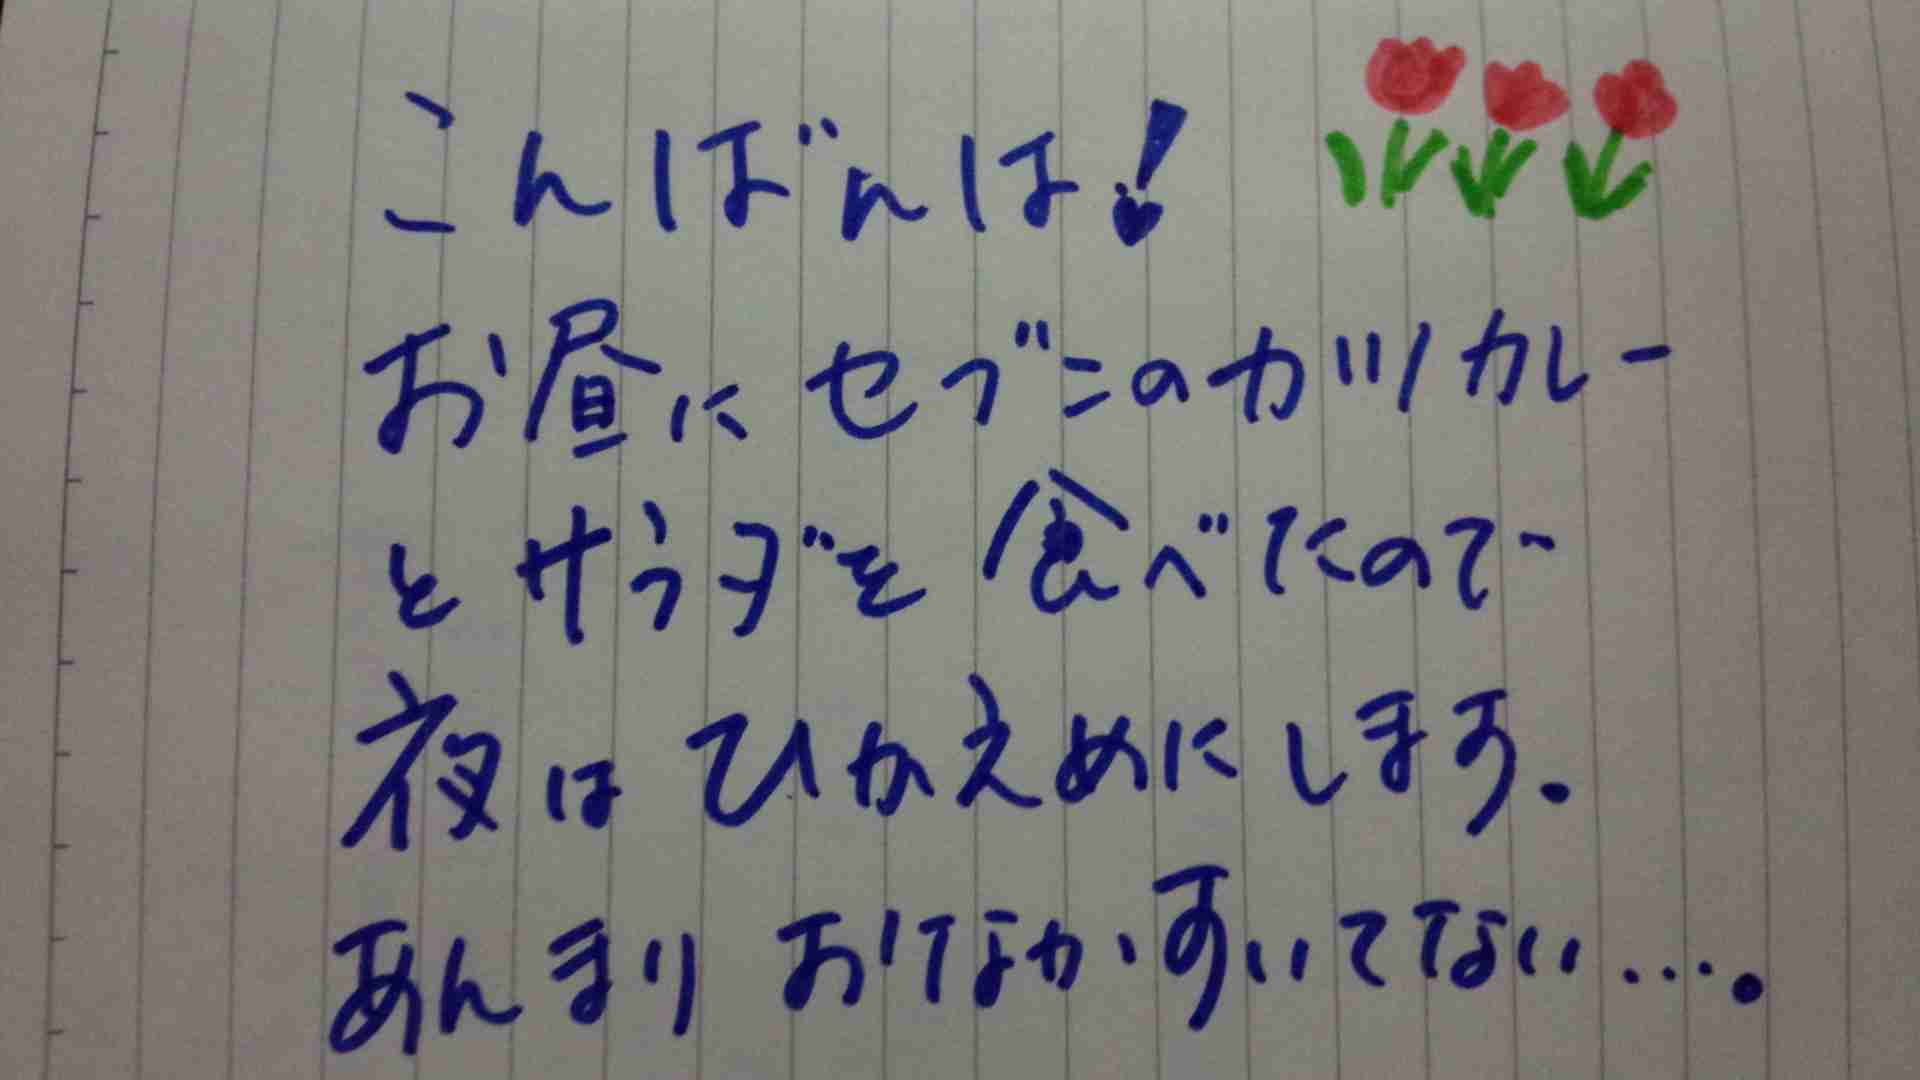 こんばんは!
お昼にセブンのカツカレー
とサラダを食べたので
夜はひかえめにします.
あんまりおなかすいてない….